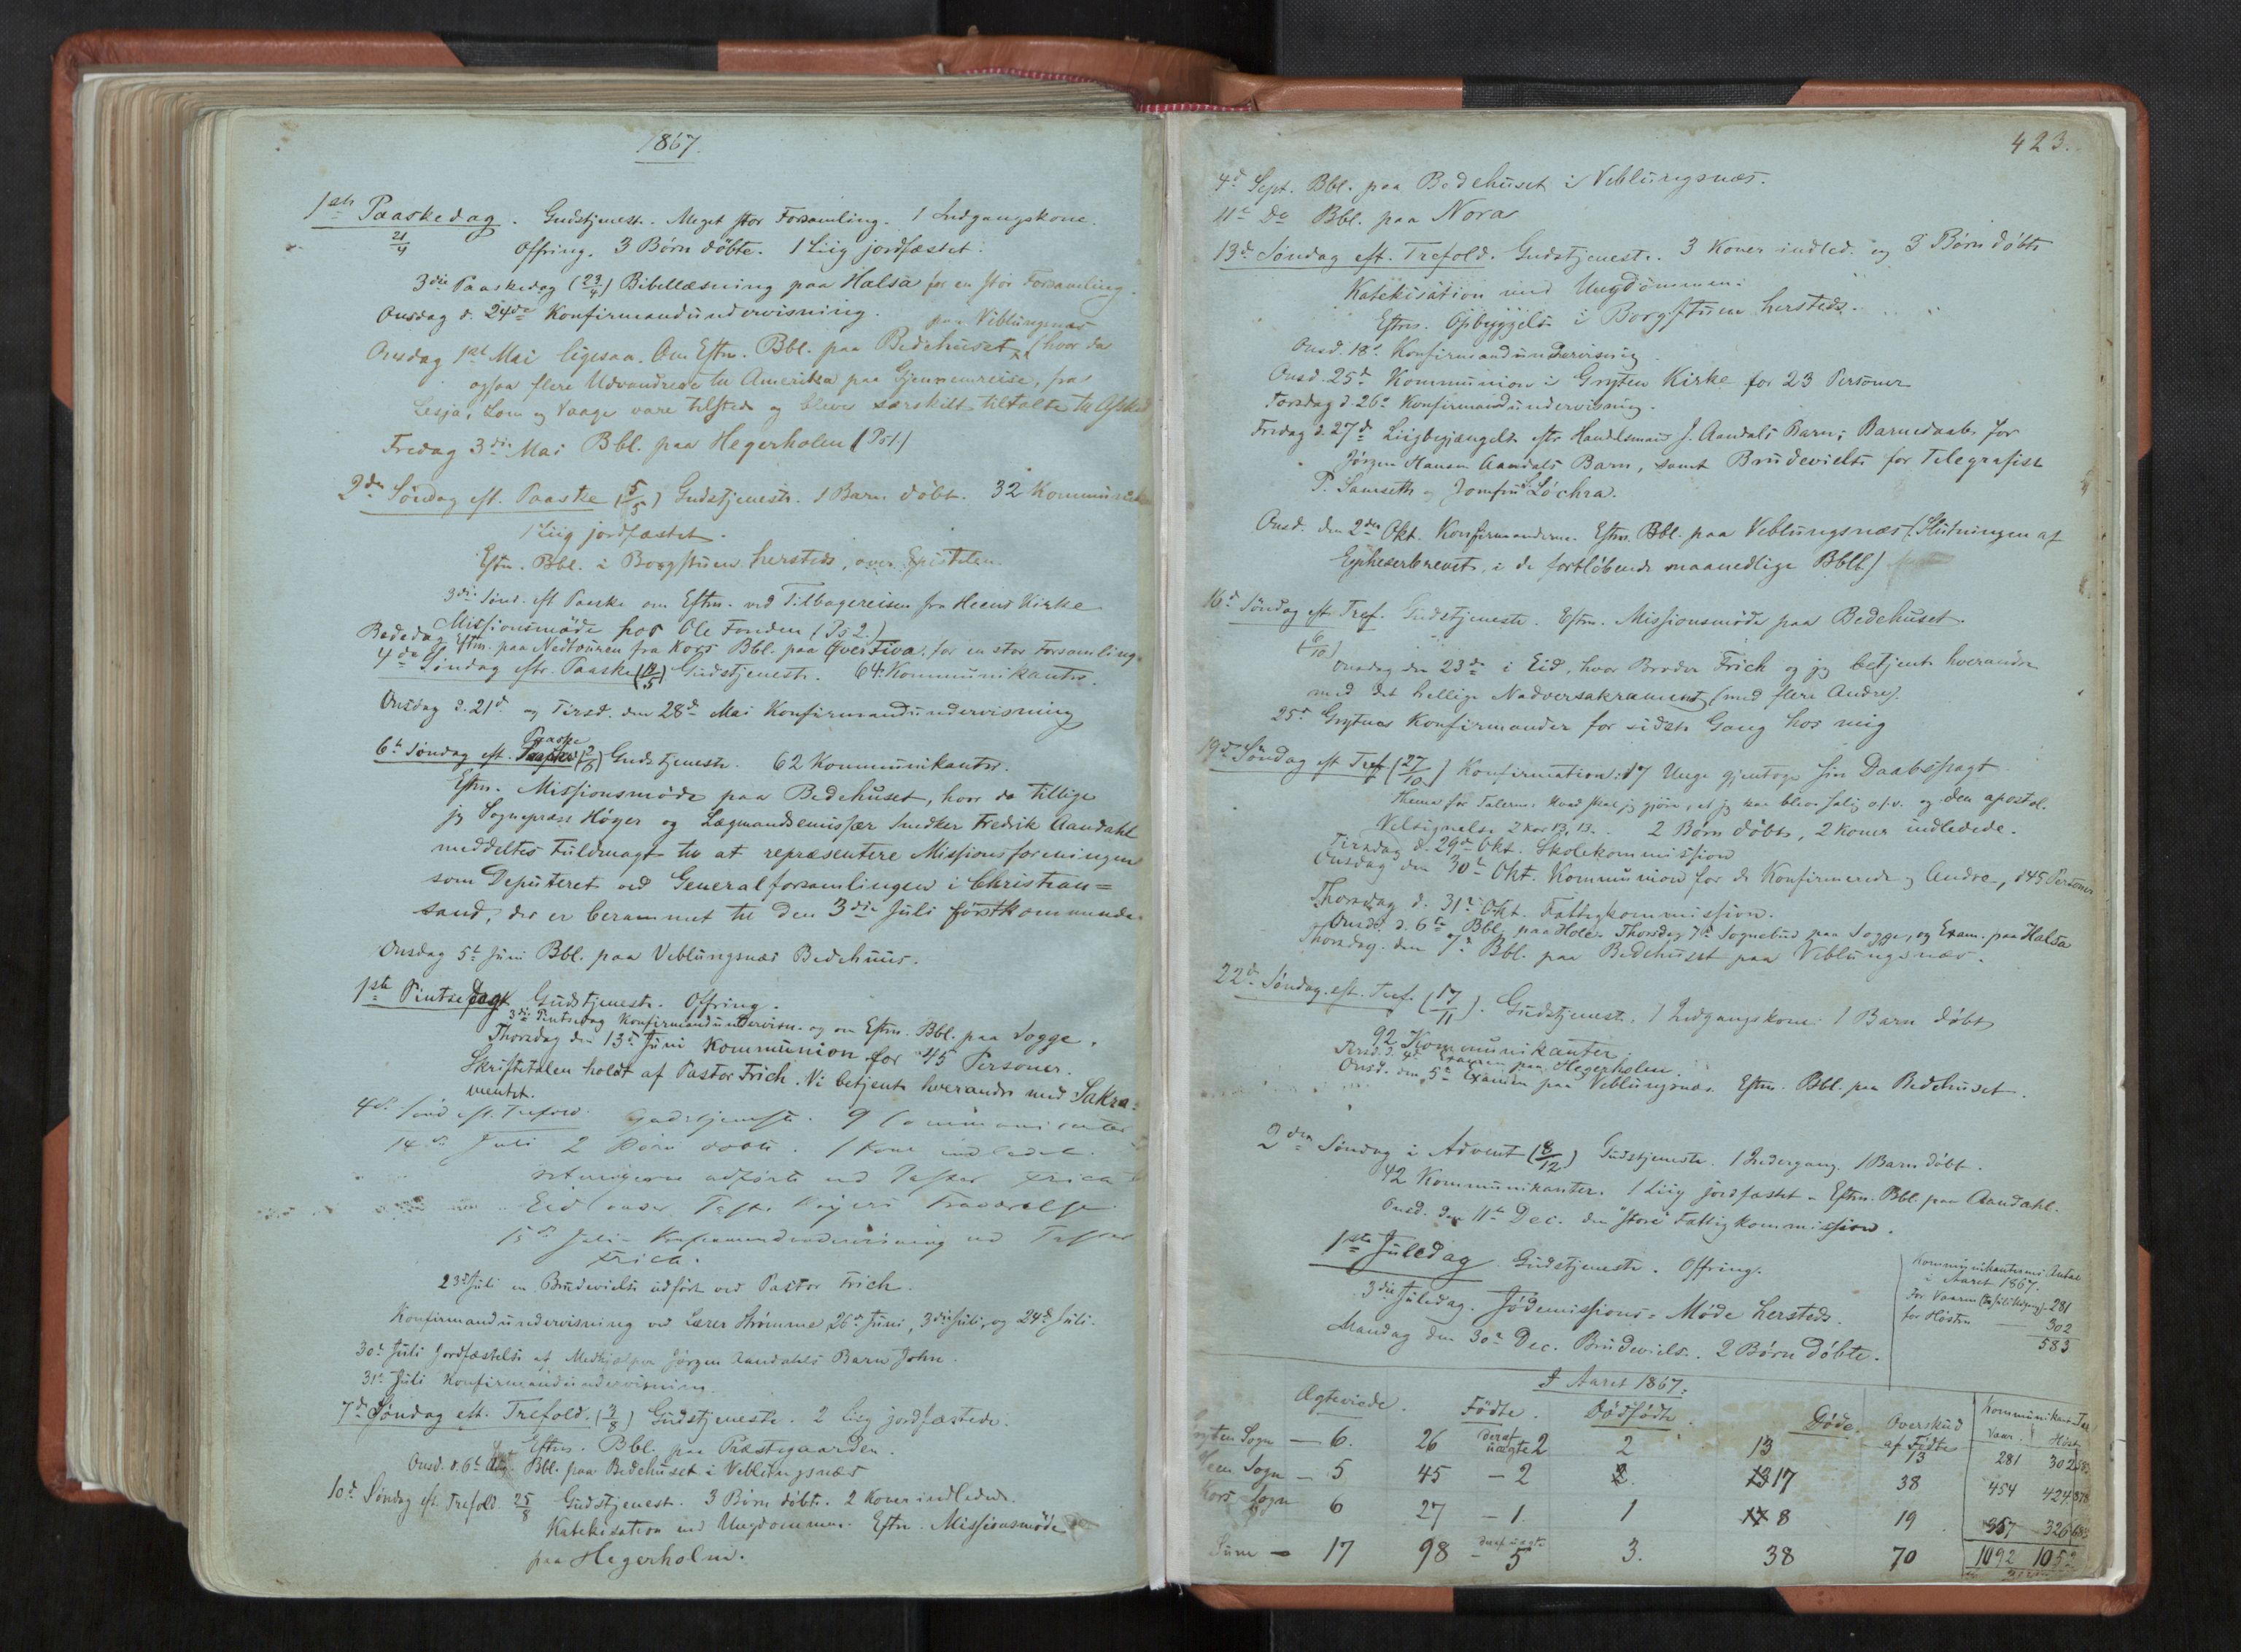 1867.
1ste Paaskedag. Gudstjeneste. Meget stor Forsamling. 1 Indgangskone.
21/4 Offring. 3 Børn döbte. 1 Liig jordfæstet.
3die Paaskedag (23/4) Bibellæsning paa Halsa for en stor Forsamling.
Onsdag d. 24de Konfirmandundervisning.
paa Veblungsnæs
Onsdag 1ste Mai ligesaa. Om Eftm. Bbl. paa Bedehuset (hvor da
ogsaa flere Udvandrere til Amerika paa Gjennemreise, fra
Lesja, Lom og Vaage vare tilstede og bleve særskilt tiltalte til Afsked
Fredag 3die Mai Bbl. paa Hegerholen (Ps 1.)
2den Söndag eft. Paaske (5/5) Gudstjeneste. 1 Barn döbt. 32 Kommunik
1 Liig jordfæstet.
Eftm. Bbl. i Borgstuen hersteds, over Epistelen.
3die Sönd. eft. Paaske om Eftm. ved Tilbagereisen fra Heens Kirke
Missionsmöde hos Ole Fonden (Ps 2.)
Bededag Eftm. paa Nedtouren fra Kors Bbl. paa Øverstiva for en stor Forsamling.
4de Søndag eftr. Paaske (19/5) Gudstjeneste. 64 Kommunikanter.
Onsdag d. 21de og Tirsd. den 28de Mai Konfirmandundervisning
Paaske
6te Søndag eft. (2/6) Gudstjeneste. 62 Kommunikanter.
Eftm. Missionsmöde paa Bedehuset, hvor da tillige
jeg Sognepræst Høyer og Lægmandsemissær Snedker Fredrik Aandahl
meddeltes Fuldmagt til at repræsentere Missionsforeningen
som Deputeret ved Generalforsamlingen i Christian=
sand, der er berammet til den 3die Juli förstkommende
Onsdag 5te Juni Bbl. paa Veblungsnæs Bedehuus.
1ste Pintsedag Gudstjeneste. Offring.
3die Pintsedag Konfirmandundervisn. og om Eftm. Bbl. paa Sogge.
Thorsdag den 13de Juni Kommunion for 45 Personer.
Skriftetalen holdt af Pastor Frich. Vi betjente hverandre med Sakra=
mentet.
4de Sönd eft. Trefold. Gudstjeneste. 9 Communicanter
14de Juli 2 Börn döbte. 1 Kone indledet.
udförte ved Pastor Frich
Eid under Pastor Höyers Fraværelse
15de Juli Konfirmandundervisning ved Pastor
Frich.
23de Juli en Brudevielse udfört ved Pastor Frich.
Konfirmandundervisning ved Lærer Strömme 26de Juni, 3die Juli, og 24de Juli.
30te Juli Jordfæstelse af Medhjælper Jörgen Aandahls Barn John.
31te Juli Konfirmandundervisning.
7de Söndag eft. Trefold. (3/8) Gudstjeneste. 2 Liig jordfæstede.
Eftm. Bbl. paa Præstegaarden.
Onsd. d. 6te Aug. Bbl. paa Bedehuset i Veblungsnæs
10de Søndag eft. Trefold. 25/8 Gudstjeneste. 3 Börn döbte. 2 Koner indledede.
Katekisation med Ungdommen. Eftm. Missionsmöde
paa Hegerholm.
423.
4de Sept. Bbl. paa Bedehuset i Veblungsnæs.
11te Do Bbl. paa Nora
13de Søndag eft. Trefold. Gudstjeneste. 3 Koner indled. og 3 Børn döbte
Katekisation med Ungdommen.
Eftm. Opbyggelse i Borgstuen hersteds.
Onsd. 18de Konfirmandundervisning
Onsd. 25de Kommunion i Gryten Kirke for 23 Personer
Torsdag d. 26de Konfirmandundervisning.
Fredag d. 27de Liigbegjængelse eftr. Handelsmand J. Aandals Barn; Barnedaab for
Jörgen Hansen Aandals Barn, samt Brudevielse for Telegrafist
P. Samseth og Jomfru Löchra.
Onsd. den 2den Okt. Konfirmanderne. Eftm. Bbl. paa Veblungsnæs (Slutningen af
Epheserbrevet, i de fortlöbende maanedlige Bbll.)
16de Söndag eft. Tref. Gudstjeneste. Eftm. Missionsmöde paa Bedehuset.
(6/10)
Onsdag den 23de i Eid, hvor Broder Frich og jeg betjente hverandre
med det hellige Nadversakrament (med flere Andre).
25de Grytens Konfirmander for sidste Gang hos mig
19de Søndag eft Tref. (27/10) Konfirmation: 17 Unge gjentoge sin Daabspagt
Thema for Talerne: Hvad skal jeg gjöre, at jeg kan blive salig o.s.v. og den apostol.
Velsignelse 2 Kor 13, 13. 2 Børn döbte, 2 Koner indledede.
Tirsdag d. 29de Okt. Skolekommission
Onsdag den 30te Okt. Kommunion for de Konfirmerede og Andre, 145 Personer
Thorsdag d. 31te Okt. Fattigkommission.
Onsd. d. 6te Bbl. paa Hole. Thorsdag 7de Sognebud paa Sogge, og Exam. paa Halsa
Thorsdag den 7de Bbl. paa Bedehuset paa Veblungsnæs.
22de Søndag eft. Tref. (17/11). Gudstjeneste. 1 Indgangskone. 1 Barn döbt
92 Kommunikanter.
Tirsd. d. 4de Examen paa Hegerholen.
Onsd. den 5te Examen paa Veblungsnæs. Eftm. Bbl. paa Bedehuset.
2den Söndag i Advent (8/12) Gudstjeneste. 1 Indergang. 1 Barn döbt.
42 Kommunikanter. 1 Liig jordfæstet. Eftm. Bbl. paa Aandahl.
Onsd. den 11te Dec. den "store" Fattigkommission.
1ste Juledag Gudstjeneste. Offring.
3die Juledag. Jödemissions-Möde hersteds.
Mandag den 30te Dec. Brudeviels. 2 Børn døbte.
Kommunikanternes Antal
i Aaret 1867.
For Vaaren 281
for Hösten 302
583
I Aaret 1867:
Ægteviede. Födte. Dödfödte. Døde. Overskud af Födte Kommunikanter Vaar. Höst
Gryten Sogn — 6. 26 deraf uægte 2 2 13 13 281 302 583
Heen Sogn — 5 45 — 2 17 38 454 424 878
Kors Sogn 6 27 — 1. 1 8 19 357 326 683
Sum — 17 98 — deraf uægte 5 3. 38 70 1092 1052